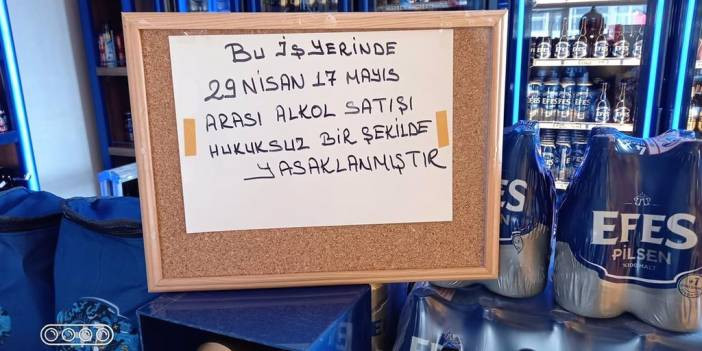 BU İŞYERİNDE
29 NİSAN 17 MAYIS
ARASI ALKOL SATIŞI
HUKUKSUZ BİR ŞEKİLDE
YASAKLANMIŞTIR
EFES
EFES
PİLSEN